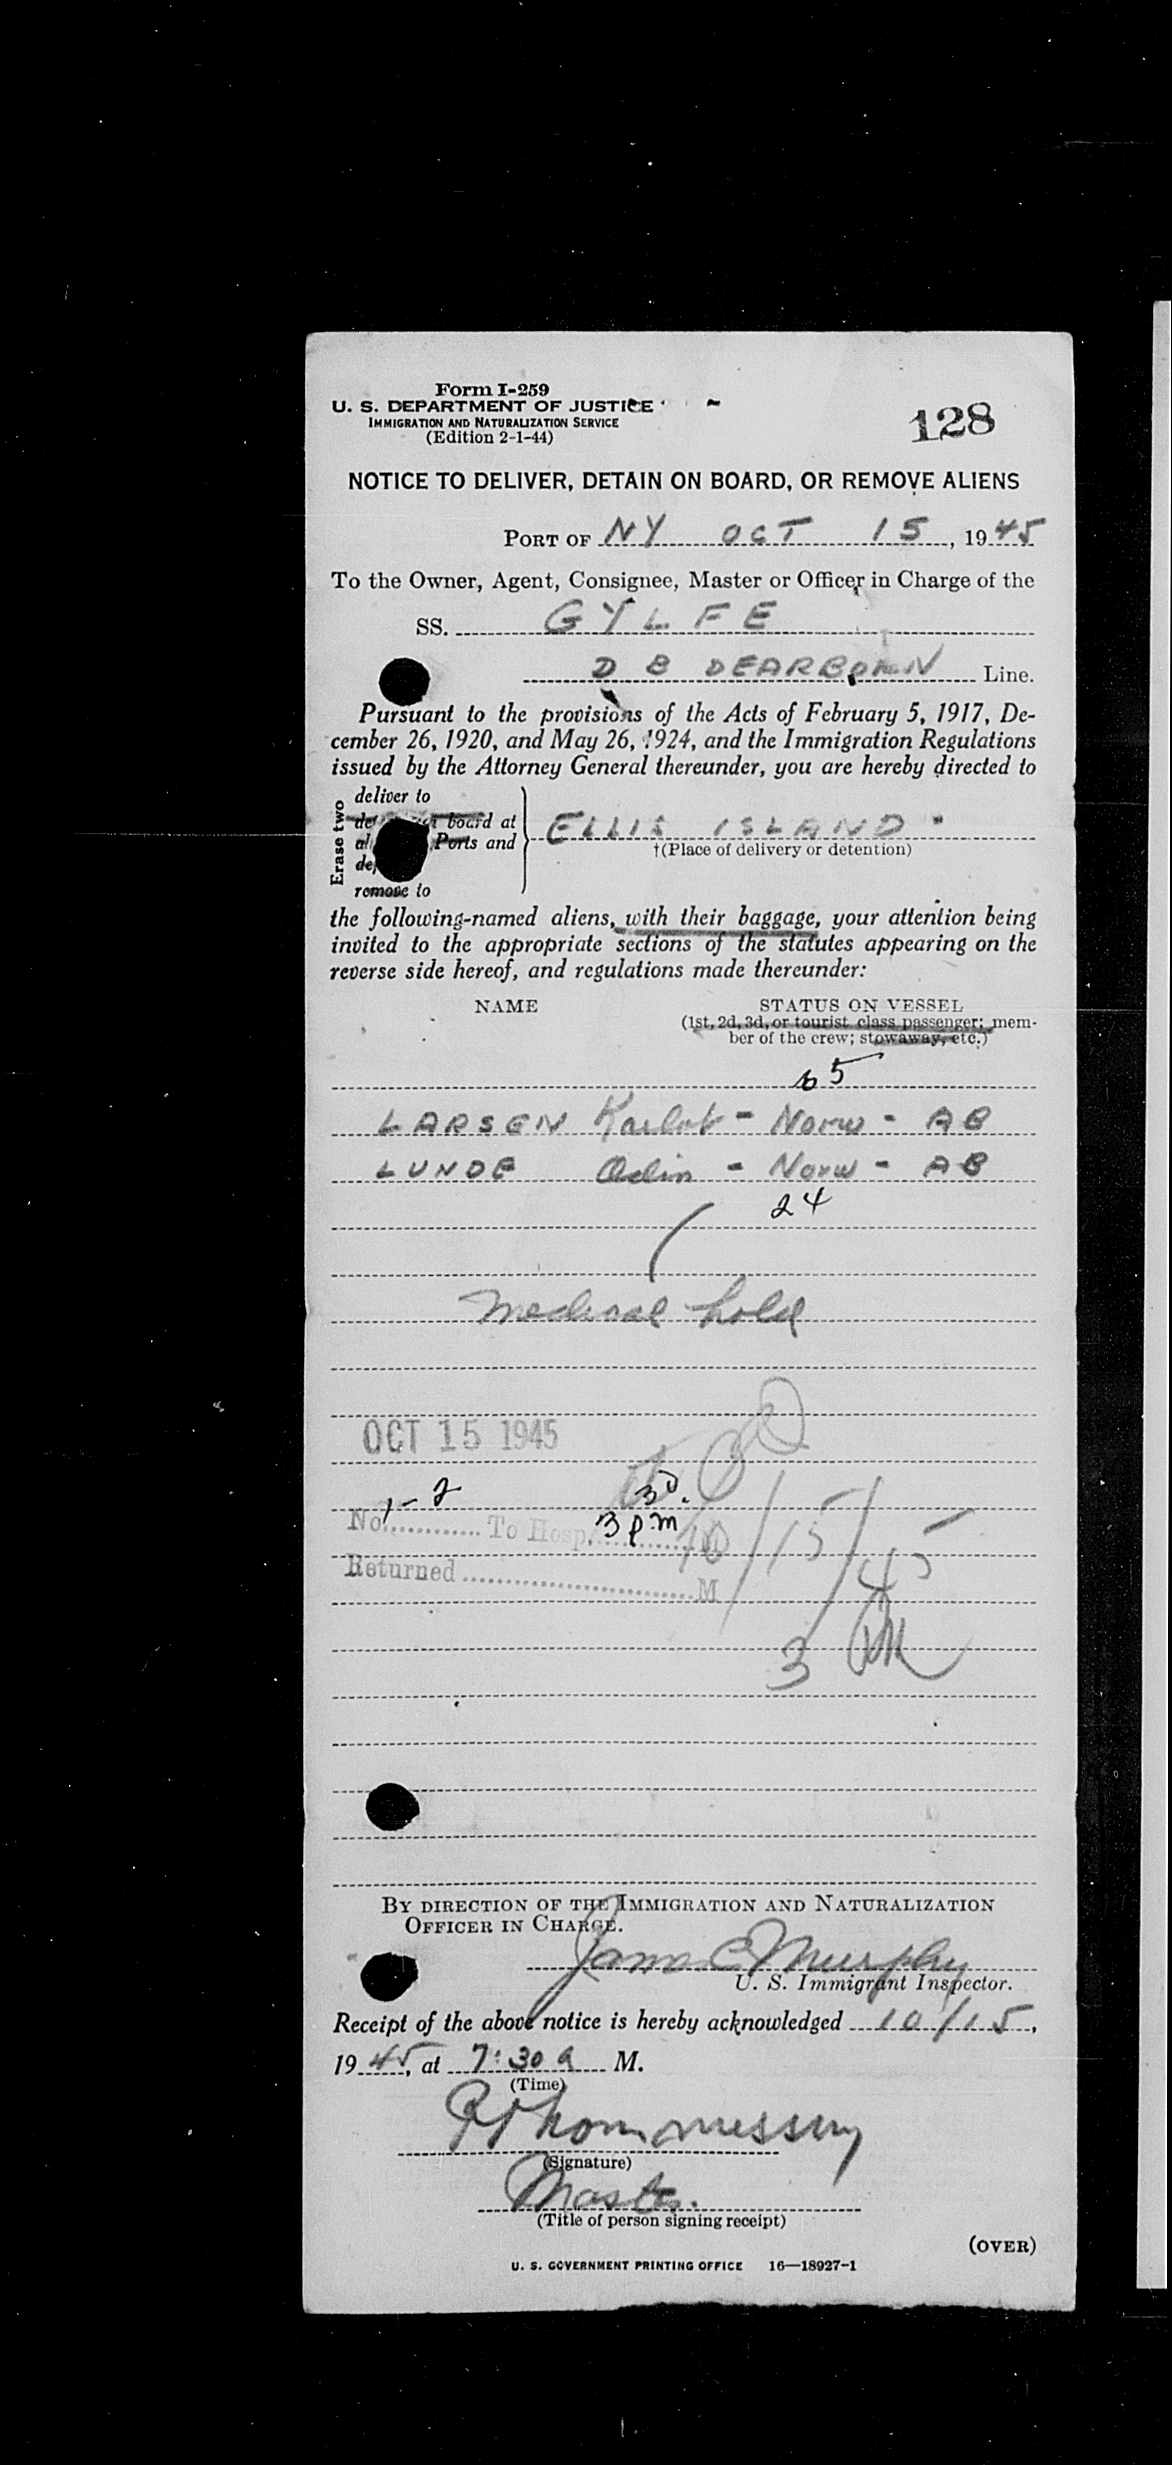 Form I-259
U. S. DEPARTMENT OF JUSTICE
IMMIGRATION AND NATURALIZATION SERVICE
(Edition 2-1-44)
128
NOTICE TO DELIVER, DETAIN ON BOARD, OR REMOVE ALIENS
PORT OF NY OCT 15, 1945
To the Owner, Agent, Consignee, Master or Officer in Charge of the
SS. GYLFE
D B DEARBORN Line.
Pursuant to the provisions of the Acts of February 5, 1917, De-
cember 26, 1920, and May 26, 1924, and the Immigration Regulations
issued by the Attorney General thereunder, you are hereby directed to
Erase two
deliver to
board at
Ports and
remove to
ELLIS ISLAND
†(Place of delivery or detention)
the following-named aliens, with their baggage, your attention being
invited to the appropriate sections of the statutes appearing on the
reverse side hereof, and regulations made thereunder:
NAME STATUS ON VESSEL
(1st, 2d, 3d, or tourist class passenger; mem-
ber of the crew; stowaway, etc.)
LARSEN - Norw - AB
LUNDE Odin - Norw - AB
24
Medical hold
OCT 15 1945
No. 1-2 To Hosp. 3 pm M
10/15/45
Returned M
3 PM
BY DIRECTION OF THE IMMIGRATION AND NATURALIZATION
OFFICER IN CHARGE.
James C Murphy
U. S. Immigrant Inspector.
Receipt of the above notice is hereby acknowledged 10/15,
1945, at 7:30 a M.
(Time)
(Signature)
Master.
(Title of person signing receipt)
(OVER)
U. S. GOVERNMENT PRINTING OFFICE 16—18927-1